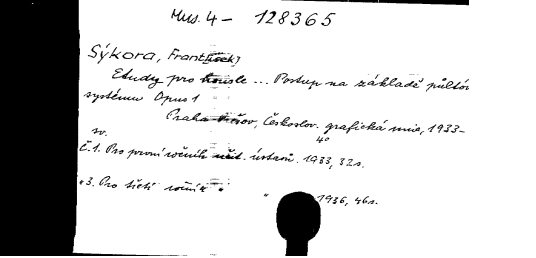 Mus. 4 - 128365
Sýkora, Frant[išek]
Etudy pro housle ... Postup na základě půltón
systému Opus 1
Praha - Smíchov, Českoslov. grafická unie, 1933-
sv. 4°
Č. 1. Pro první ročník učit. ústavů. 1933, 32 s.
" 3. Pro třetí ročník " " 1936, 46 s.